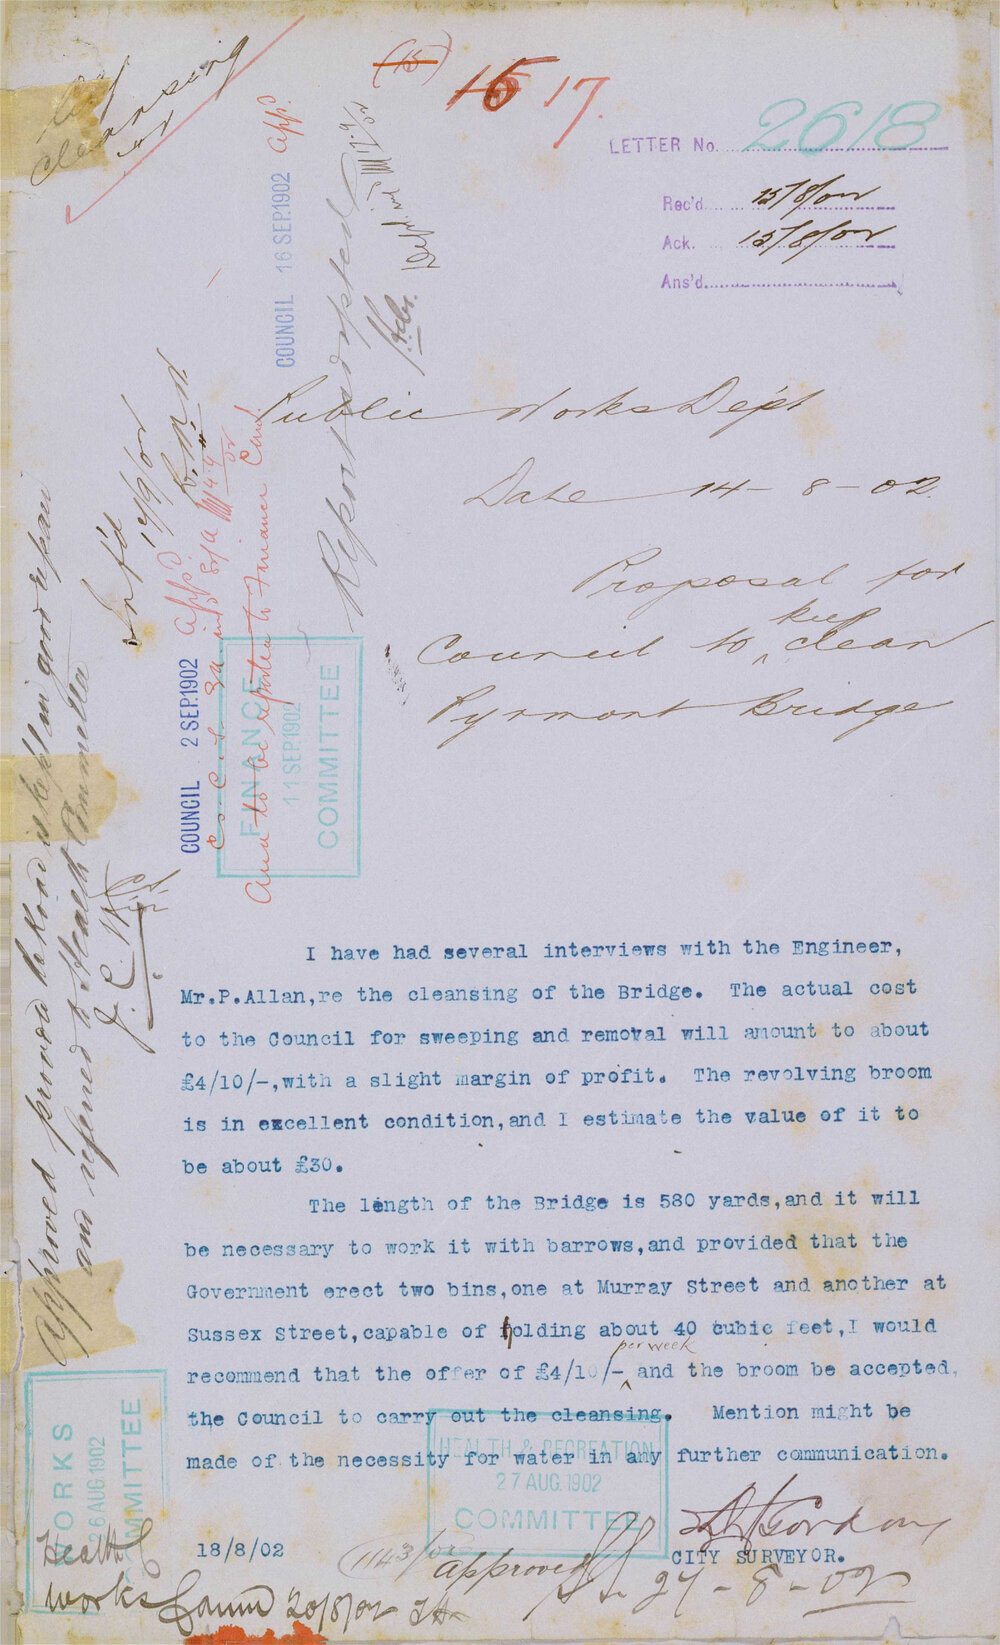 City
cleansing
(15)
15 16 17.
LETTER No. 2618
Rec'd. 15/8/02
Ack. 15/8/02
Ans'd.
COUNCIL 16 SEP.1902 App'd
Report adopted
Public Works Dept
Date 14-8-02.
Proposal for
keep
Council to ^ clean
Pyrmont Bridge
Inf'd
17/9/02
COUNCIL 2 SEP.1902 app'd
and to be reported to Finance Com.
FINANCE
11 SEP.1902
COMMITTEE
Approved provided the Road is kept in good repair
and referred to Health Committee
I have had several interviews with the Engineer,
Mr.P.Allan,re the cleansing of the Bridge. The actual cost
to the Council for sweeping and removal will amount to about
£4/10/-,with a slight margin of profit. The revolving broom
is in excellent condition,and I estimate the value of it to
be about £30.
The length of the Bridge is 580 yards,and it will
be necessary to work it with barrows,and provided that the
Government erect two bins,one at Murray Street and another at
Sussex Street,capable of holding about 40 cubic feet,I would
per week
recommend that the offer of £4/10/- ^ and the broom be accepted,
the Council to carry out the cleansing. Mention might be
made of the necessity for water in any further communication.
WORKS
26 AUG 1902
COMMITTEE
HEALTH & RECREATION
27 AUG.1902
COMMITTEE
18/8/02
CITY SURVEYOR.
Health
Works Comm 20/8/02
1143/02
approved
27-8-02